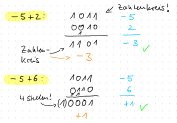 -5+2: 1011 -5 Zahlenkreis!
0010 2
Zahlen-
kreis 1101 -3
-3 ✓
-5+6: 1011 -5
0110 6
4 Stellen! (1)0001 +1 ✓
+1